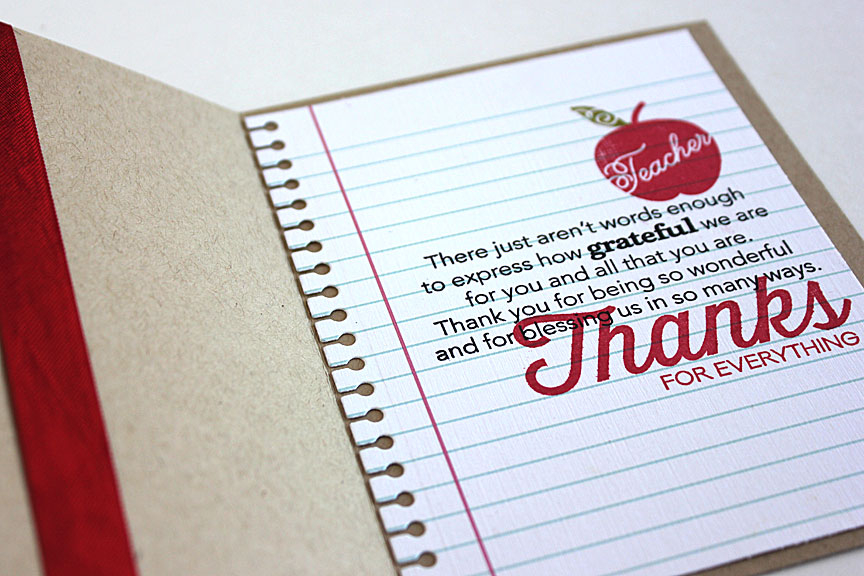 Teacher
There just aren't words enough
to express how grateful we are
for you and all that you are.
Thank you for being so wonderful
and for blessing us in so many ways.
Thanks
FOR EVERYTHING